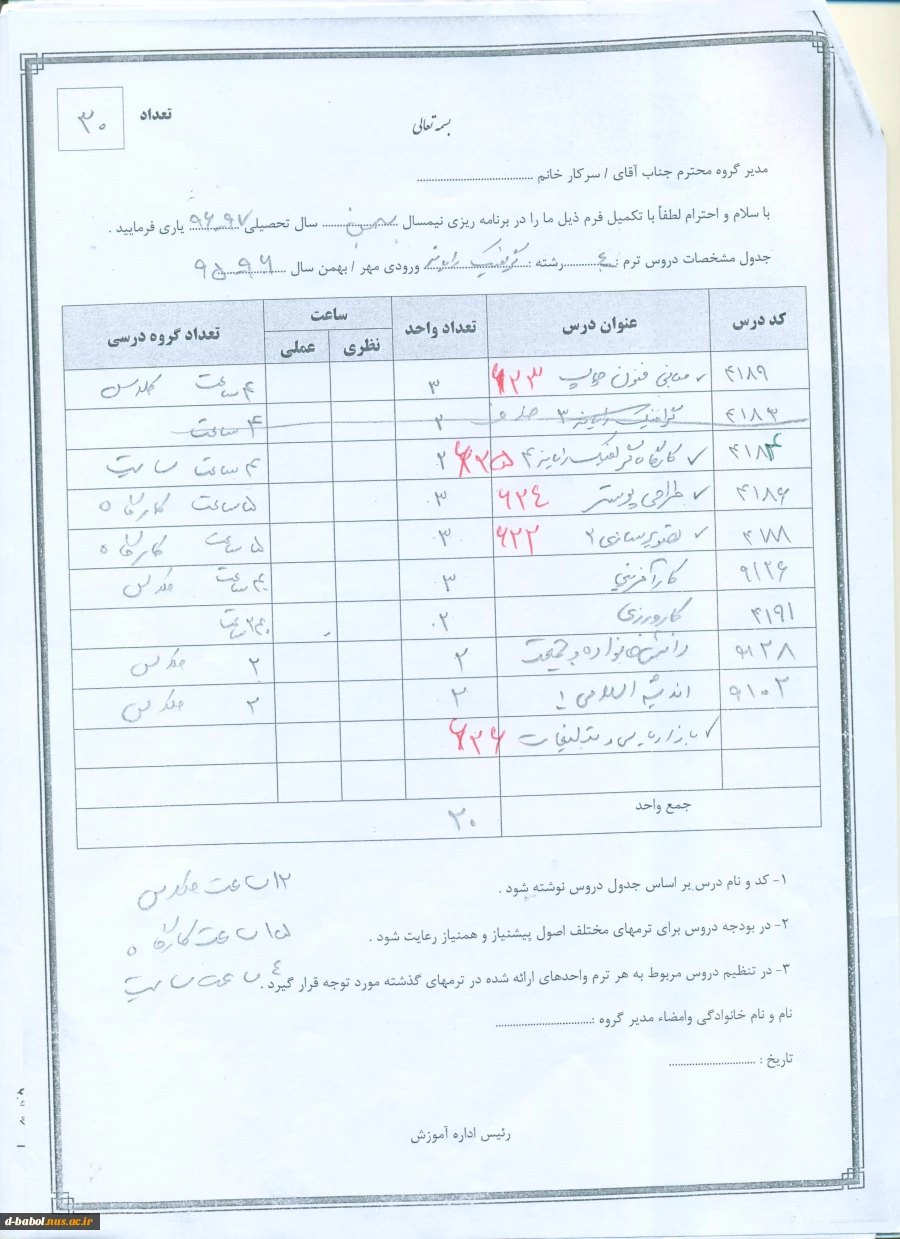 بسمه تعالی
تعداد ۳۰
مدیر گروه محترم جناب آقای / سرکار خانم ........................
با سلام و احترام لطفاً با تکمیل فرم ذیل ما را در برنامه ریزی نیمسال بهمن سال تحصیلی ۹۶.۹۷ یاری فرمایید .
جدول مشخصات دروس ترم : ۴ رشته : گرافیک ورودی مهر / بهمن سال ۹۵.۹۶
کد درس عنوان درس تعداد واحد ساعت تعداد گروه درسی
نظری عملی
۴۱۸۹ مبانی فنون چاپ ۶۲۳ ۳ ۴ ساعت کلاس
۴۱۸۳ گرافیک رایانه ۳ ۲ ۴ ساعت
۴۱۸۴ کارگاه گرافیک رایانه ۴ ۶۲۵ ۲ ۴ ساعت سایت
۴۱۸۶ طراحی پوستر ۶۲۴ ۳ ۵ ساعت کارگاه
۴۱۸۸ تصویرسازی ۲ ۶۲۲ ۳ ۵ ساعت کارگاه
۹۱۲۶ کارآفرینی ۳ ۴ ساعت کلاس
۴۱۹۱ کارورزی ۲ ساعت
۹۱۲۸ دانش خانواده و جمعیت ۲ ۲ کلاس
۹۱۰۲ اندیشه اسلامی ۱ ۲ ۲ کلاس
بازاریابی و تبلیغات ۶۲۶
جمع واحد ۲۰
۱- کد و نام درس بر اساس جدول دروس نوشته شود .
۱۲ ساعت کلاس
۲- در بودجه دروس برای ترمهای مختلف اصول پیشنیاز و همنیاز رعایت شود .
۱۵ ساعت کارگاه
۳- در تنظیم دروس مربوط به هر ترم واحدهای ارائه شده در ترمهای گذشته مورد توجه قرار گیرد .
۴ ساعت سایت
نام و نام خانوادگی وامضاء مدیر گروه :........................
تاریخ : ........................
رئیس اداره آموزش
d-babol.nus.ac.ir